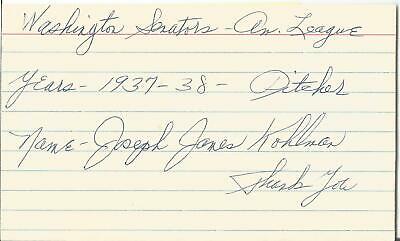 Washington Senators - Am. League
Years - 1937-38 - Pitcher
Name - Joseph James Kohlman
Thank You